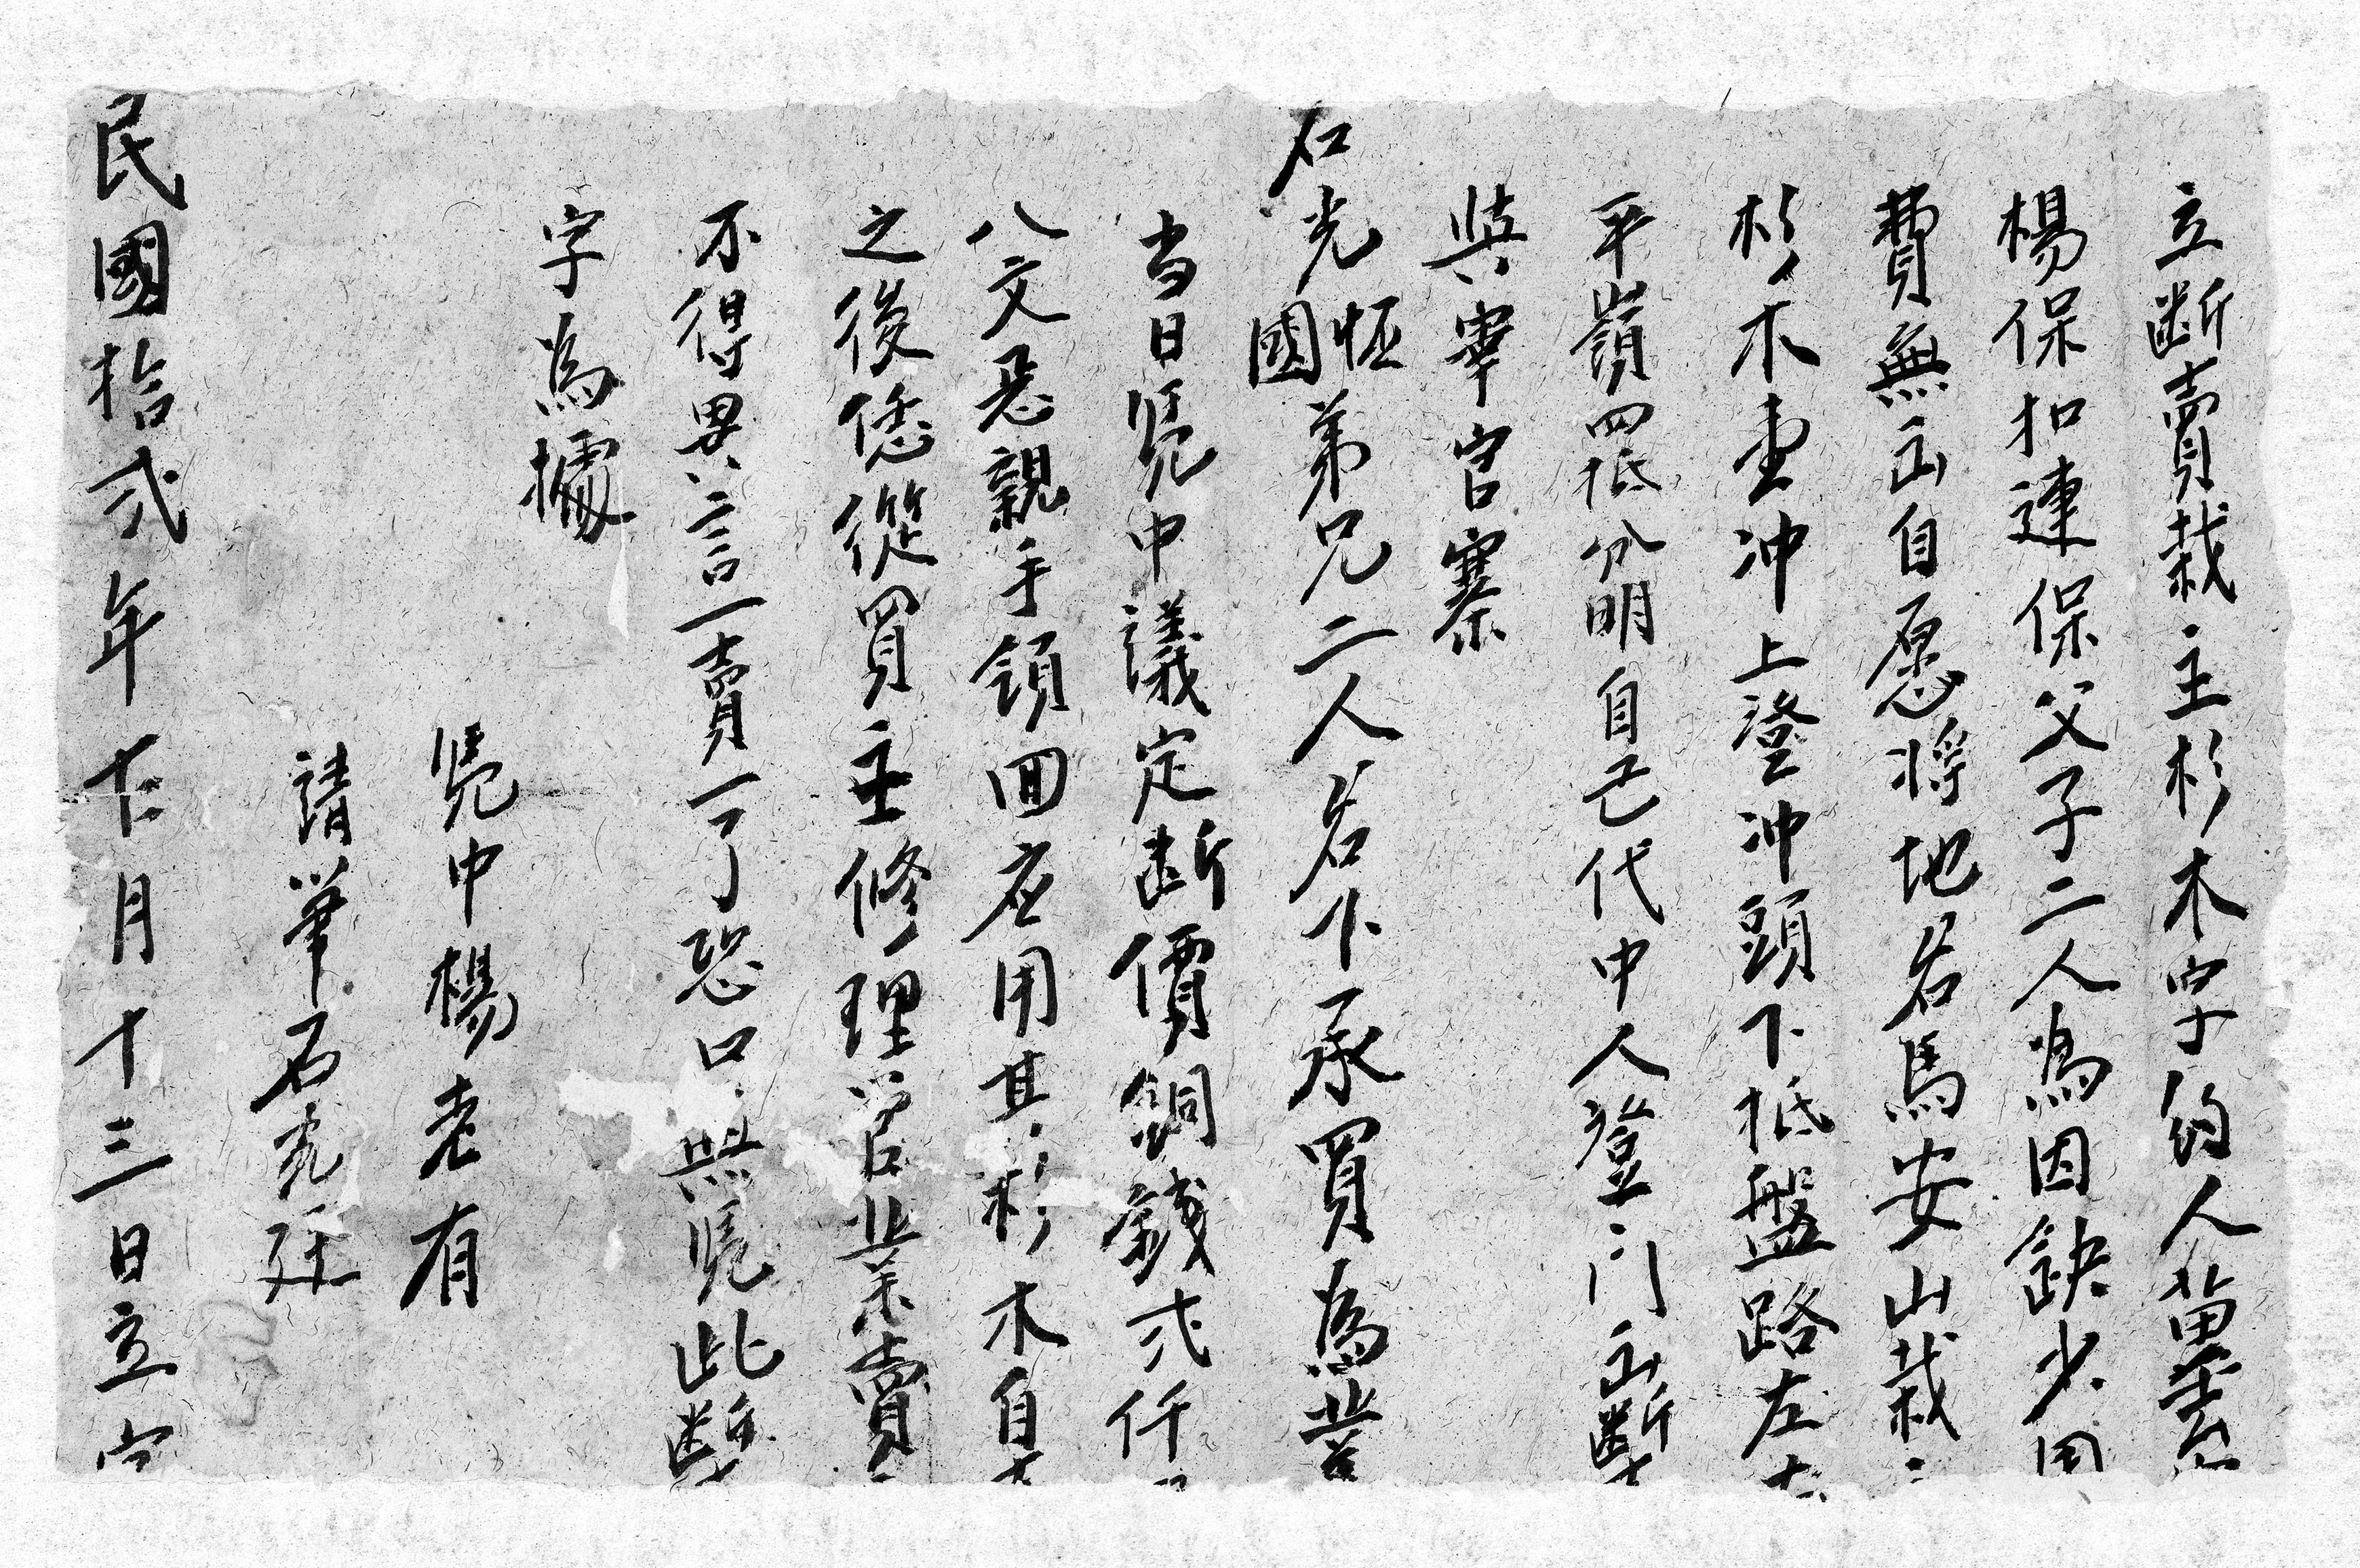 立断賣栽主杉木字約人苗
楊保扣連保父子二人為因缺少用
費無出自愿将地名馬安山栽
杉木壹冲上登冲頭下抵盤路左右
平嶺四抵分明自己代中人登門出斷
與宰官寨
石光恒國弟兄二人名下承買為業
当日凴中議定断價銅錢弍仟
八文是親手領回应用其杉木自
之後恁從買主修理管業賣
不得異言一賣一了恐口無凴此断
字為據
凴中楊老有
請筆石光廷
民國拾弍年十二月十三日立字